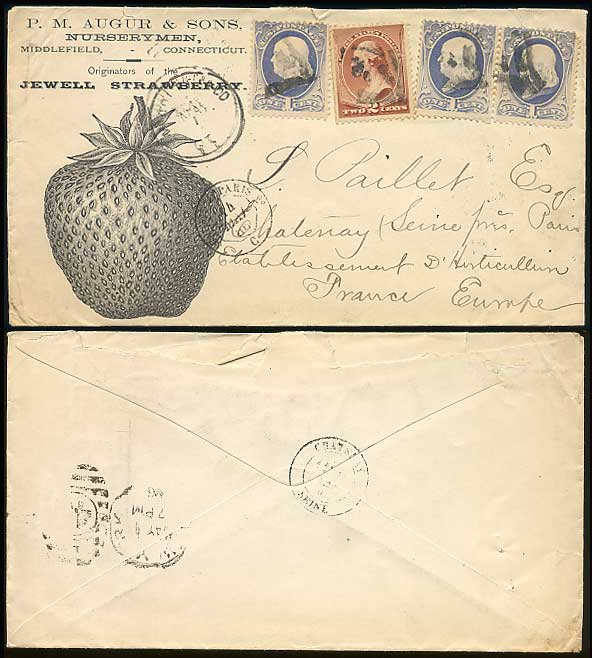 P. M. AUGUR & SONS,
NURSERYMEN,
MIDDLEFIELD, - CONNECTICUT.
Originators of the
JEWELL STRAWBERRY.
ONE CENT
TWO 2 CENTS
ONE CENT
ONE CENT
PARIS
Paillet Esq
Chatenay (Seine près Paris
Etablissement D'Horticulture
France Europe
SEINE
7 PM